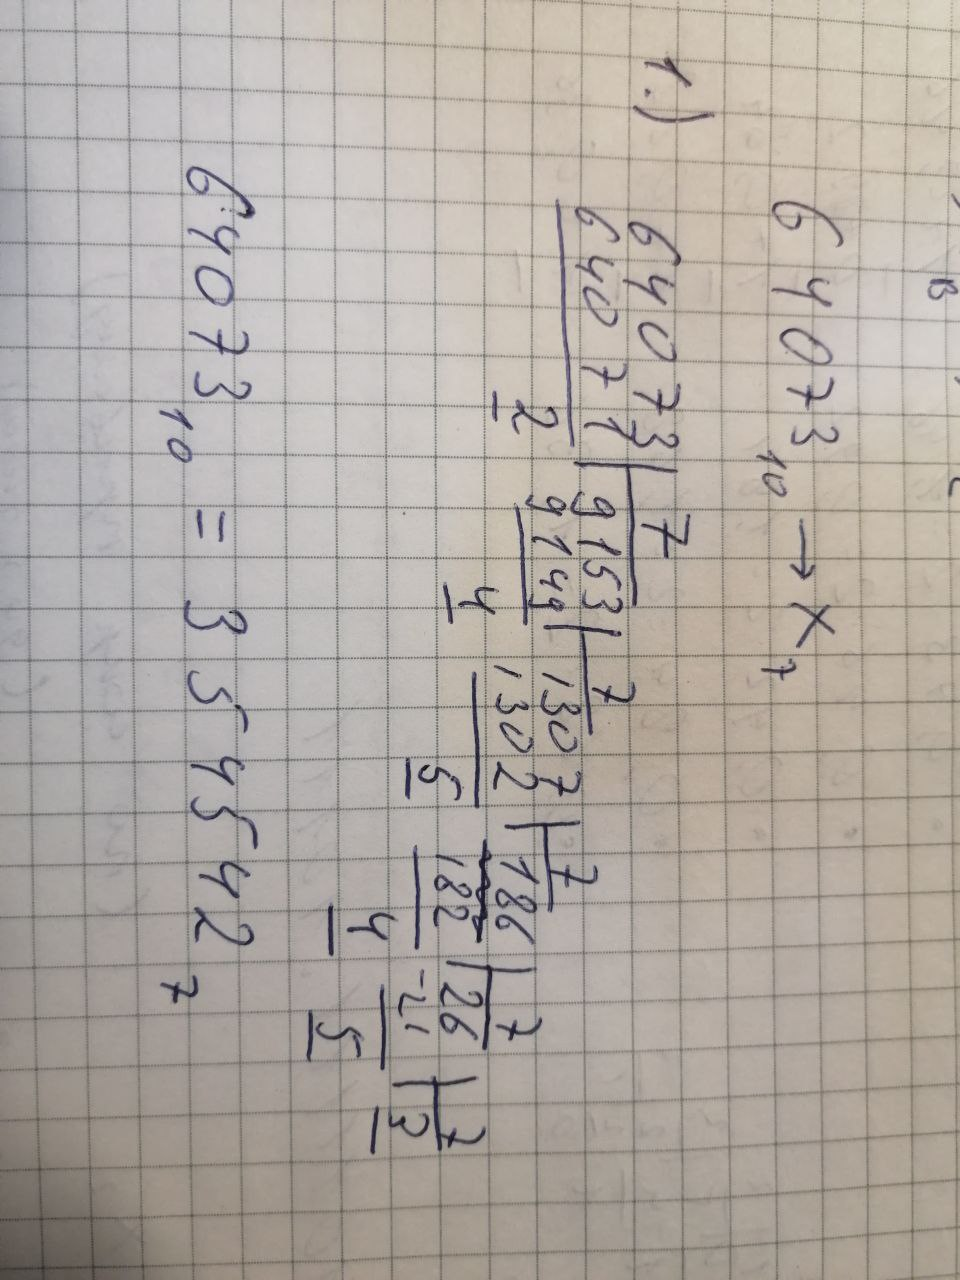 1.) 64073₁₀ → X₇
64073 | 7
64071 | 9153 | 7
2 9149 | 1307 | 7
4 1302 | 186 | 7
5 182 | 26 | 7
4 -21 | 3
5
64073₁₀ = 3 5 4 5 4 2₇